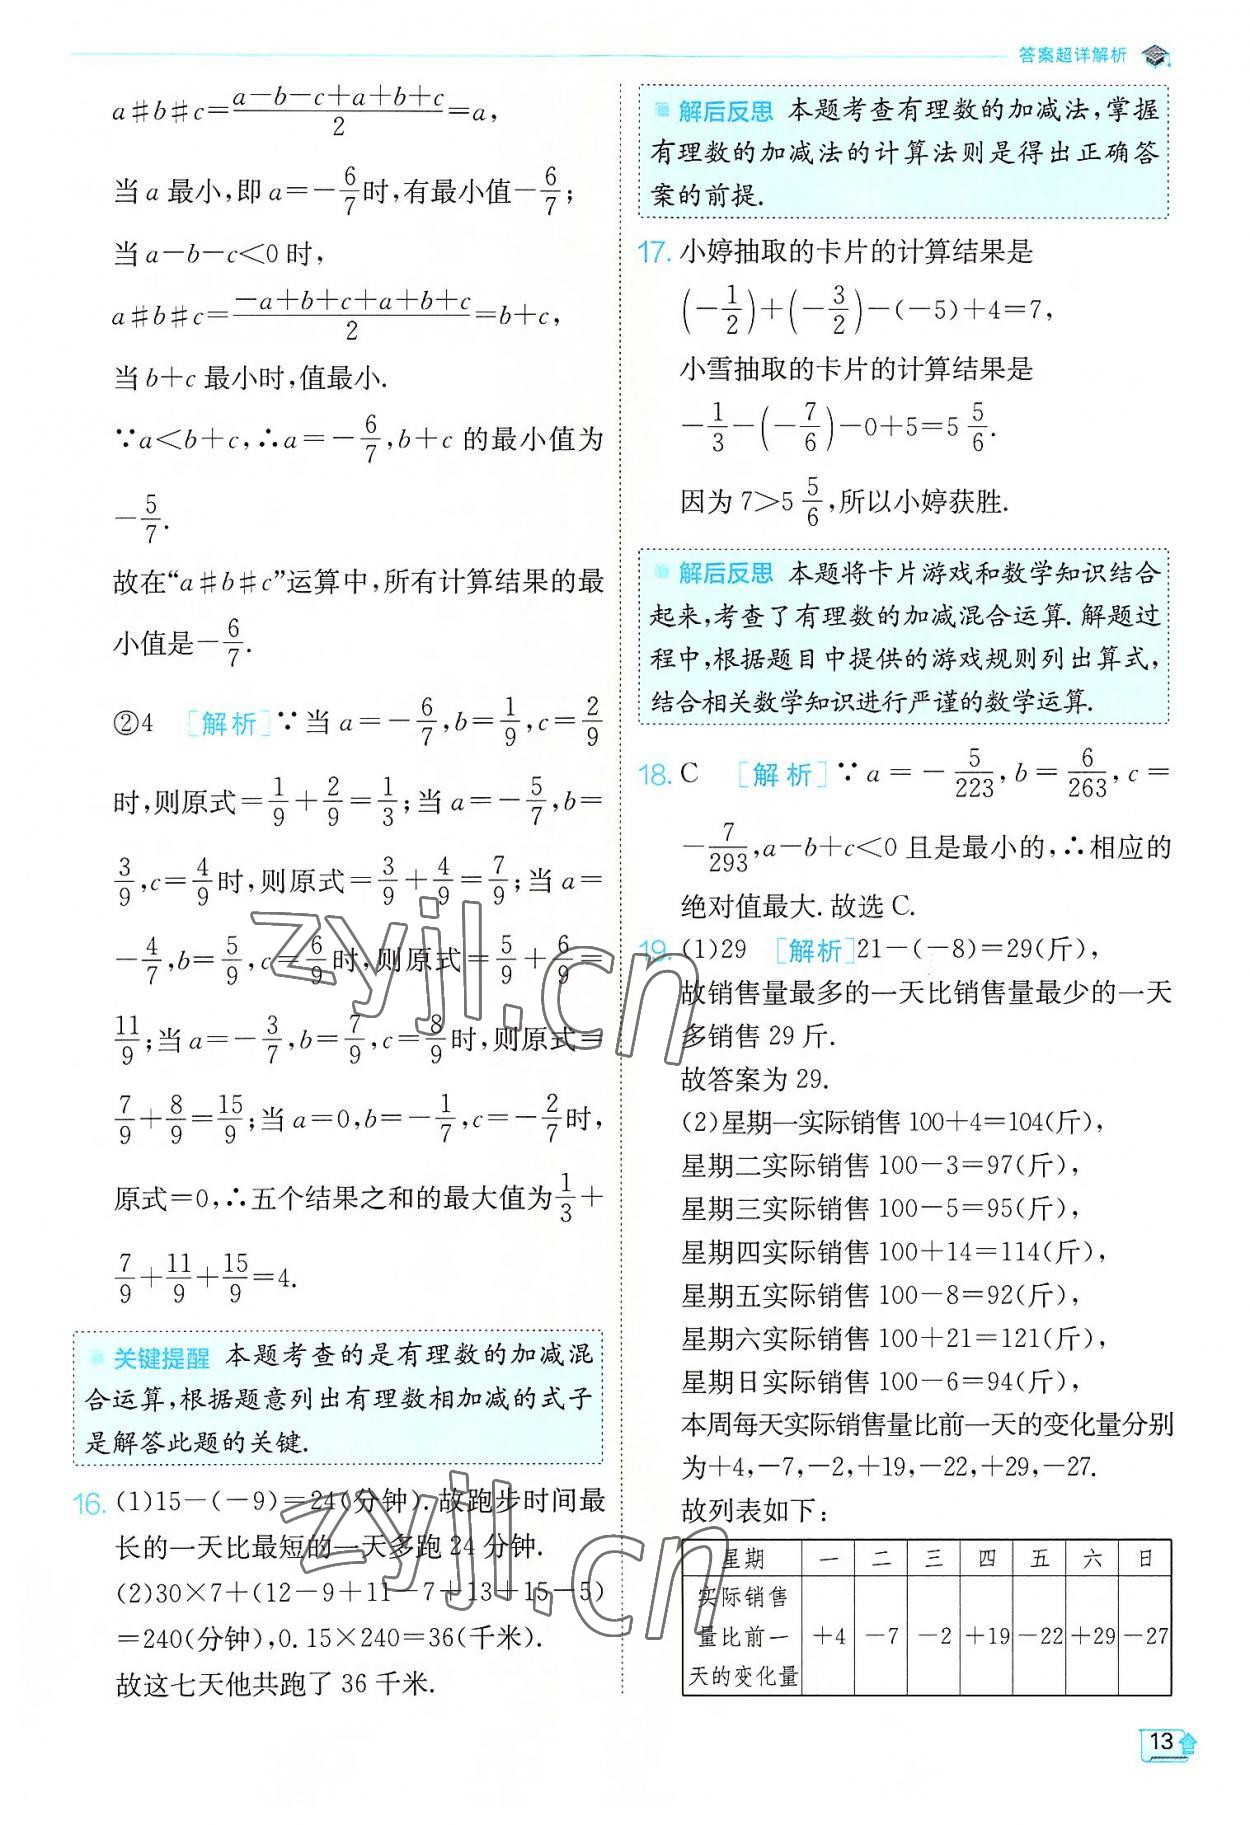 答案超详解析
a#b#c=\frac{a-b-c+a+b+c}{2}=a,
当 a 最小,即 a=-\frac{6}{7}时,有最小值-\frac{6}{7};
当 a-b-c<0 时,
a#b#c=\frac{-a+b+c+a+b+c}{2}=b+c,
当 b+c 最小时,值最小.
∵a<b+c,∴a=-\frac{6}{7},b+c 的最小值为
-\frac{5}{7}.
故在“a#b#c”运算中,所有计算结果的最
小值是-\frac{6}{7}.
②4 [解析]∵当 a=-\frac{6}{7},b=\frac{1}{9},c=\frac{2}{9}
时,则原式=\frac{1}{9}+\frac{2}{9}=\frac{1}{3};当 a=-\frac{5}{7},b=
\frac{3}{9},c=\frac{4}{9}时,则原式=\frac{3}{9}+\frac{4}{9}=\frac{7}{9};当 a=
-\frac{4}{7},b=\frac{5}{9},c=\frac{6}{9}时,则原式=\frac{5}{9}+\frac{6}{9}=
\frac{11}{9};当 a=-\frac{3}{7},b=\frac{7}{9},c=\frac{8}{9}时,则原式=
\frac{7}{9}+\frac{8}{9}=\frac{15}{9};当 a=0,b=-\frac{1}{7},c=-\frac{2}{7}时,
原式=0,∴五个结果之和的最大值为\frac{1}{3}+
\frac{7}{9}+\frac{11}{9}+\frac{15}{9}=4.
关键提醒 本题考查的是有理数的加减混
合运算,根据题意列出有理数相加减的式子
是解答此题的关键.
16. (1)15-(-9)=24(分钟).故跑步时间最
长的一天比最短的一天多跑 24 分钟.
(2)30×7+(12-9+11-7+13+15-5)
=240(分钟),0.15×240=36(千米).
故这七天他共跑了 36 千米.
解后反思 本题考查有理数的加减法,掌握
有理数的加减法的计算法则是得出正确答
案的前提.
17. 小婷抽取的卡片的计算结果是
(-\frac{1}{2})+(-\frac{3}{2})-(-5)+4=7,
小雪抽取的卡片的计算结果是
-\frac{1}{3}-(-\frac{7}{6})-0+5=5\frac{5}{6}.
因为 7>5\frac{5}{6},所以小婷获胜.
解后反思 本题将卡片游戏和数学知识结合
起来,考查了有理数的加减混合运算. 解题过
程中,根据题目中提供的游戏规则列出算式,
结合相关数学知识进行严谨的数学运算.
18. C [解析]∵a=-\frac{5}{223},b=\frac{6}{263},c=
-\frac{7}{293},a-b+c<0 且是最小的,∴相应的
绝对值最大. 故选 C.
19. (1)29 [解析]21-(-8)=29(斤),
故销售量最多的一天比销售量最少的一天
多销售 29 斤.
故答案为 29.
(2)星期一实际销售 100+4=104(斤),
星期二实际销售 100-3=97(斤),
星期三实际销售 100-5=95(斤),
星期四实际销售 100+14=114(斤),
星期五实际销售 100-8=92(斤),
星期六实际销售 100+21=121(斤),
星期日实际销售 100-6=94(斤),
本周每天实际销售量比前一天的变化量分别
为+4,-7,-2,+19,-22,+29,-27.
故列表如下:
星期 一 二 三 四 五 六 日
实际销售
量比前一 +4 -7 -2 +19 -22 +29 -27
天的变化量
13
zyjl.cn
zyjl.cn